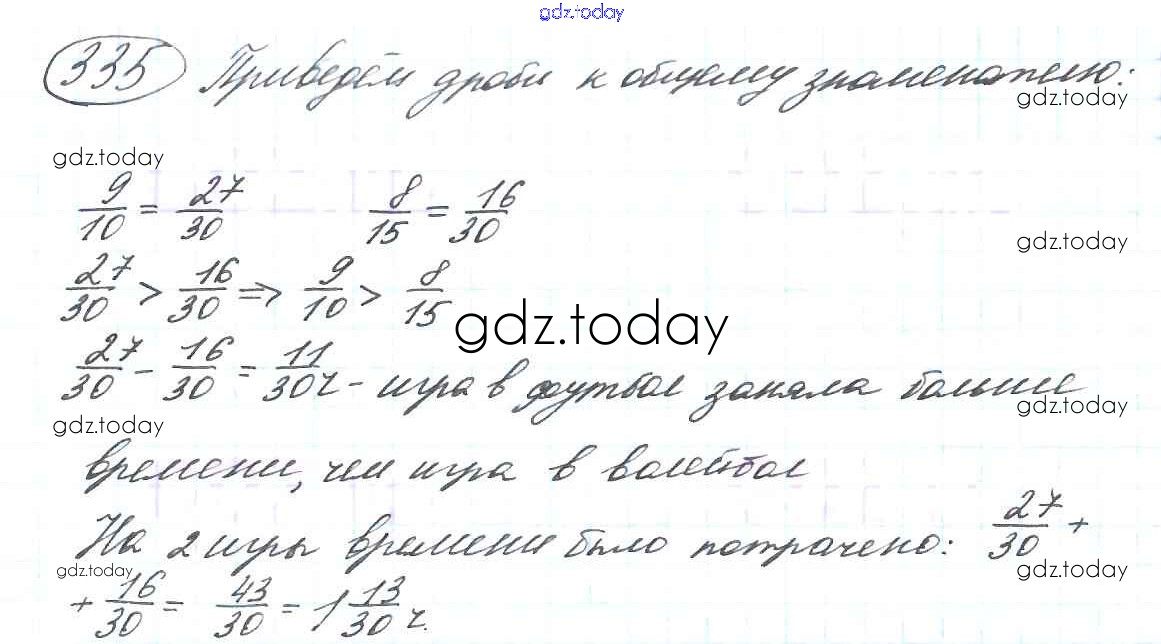 gdz.today
335 Приведём дроби к общему знаменателю:
gdz.today
gdz.today
9/10 = 27/30 8/15 = 16/30
gdz.today
27/30 > 16/30 => 9/10 > 8/15
gdz.today
27/30 - 16/30 = 11/30 ч - игра в футбол заняла больше
gdz.today
gdz.today
времени, чем игра в волейбол
На 2 игры времени было потрачено: 27/30 +
gdz.today
gdz.today
+ 16/30 = 43/30 = 1 13/30 ч.